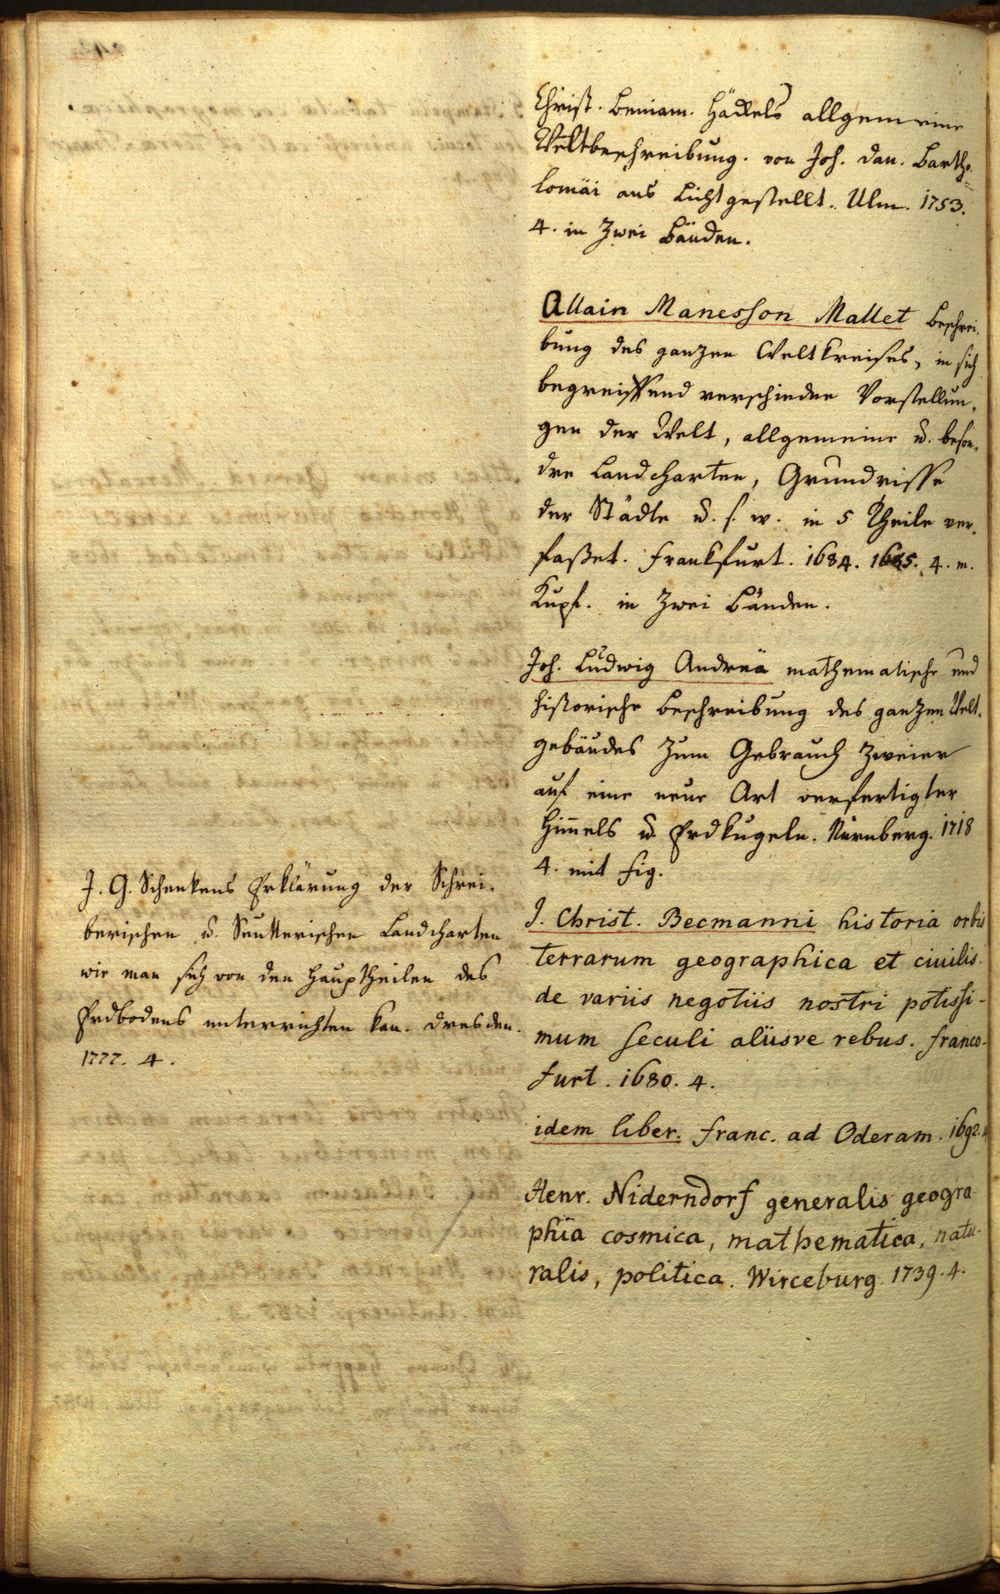 Christ. Beniam. Häckels allgemeine
Weltbeschreibung. von Joh. Dan. Bartho-
lomäi ans Licht gestellt. Ulm. 1753.
4. in zwei Bänden.
Allain Manesson Mallet Beschrei-
bung des ganzen Weltkreises, in sich
begreiffend verschiedne Vorstellun-
gen der Welt, allgemeine u. beson-
dre Landcharten, Grundrisse
der Städte u. s. w. in 5 Theile ver-
faßet. Frankfurt. 1684. 1685. 4. m.
Kupf. in zwei Bänden.
Joh. Ludwig Andreä mathematische und
historische Beschreibung des ganzen Welt-
gebäudes zum Gebrauch zweier
auf eine neue Art verfertigter
Himmels u. Erdkugeln. Nürnberg. 1718
4. mit fig.
J. G. Schenkens Erklärung der Schrei-
berischen u. Seutterischen Landcharten
wie man sich von den Haupttheilen des
Erdbodens unterrichten kan. Dresden.
1777. 4.
J. Christ. Becmanni historia orbis
terrarum geographica et ciuilis.
de variis negotiis nostri potissi-
mum seculi aliisve rebus. franco-
furt. 1680. 4.
idem liber. franc. ad Oderam. 1692.
Henr. Niderndorf generalis geogra
phia cosmica, mathematica, natu-
ralis, politica. Wirceburg. 1739. 4.